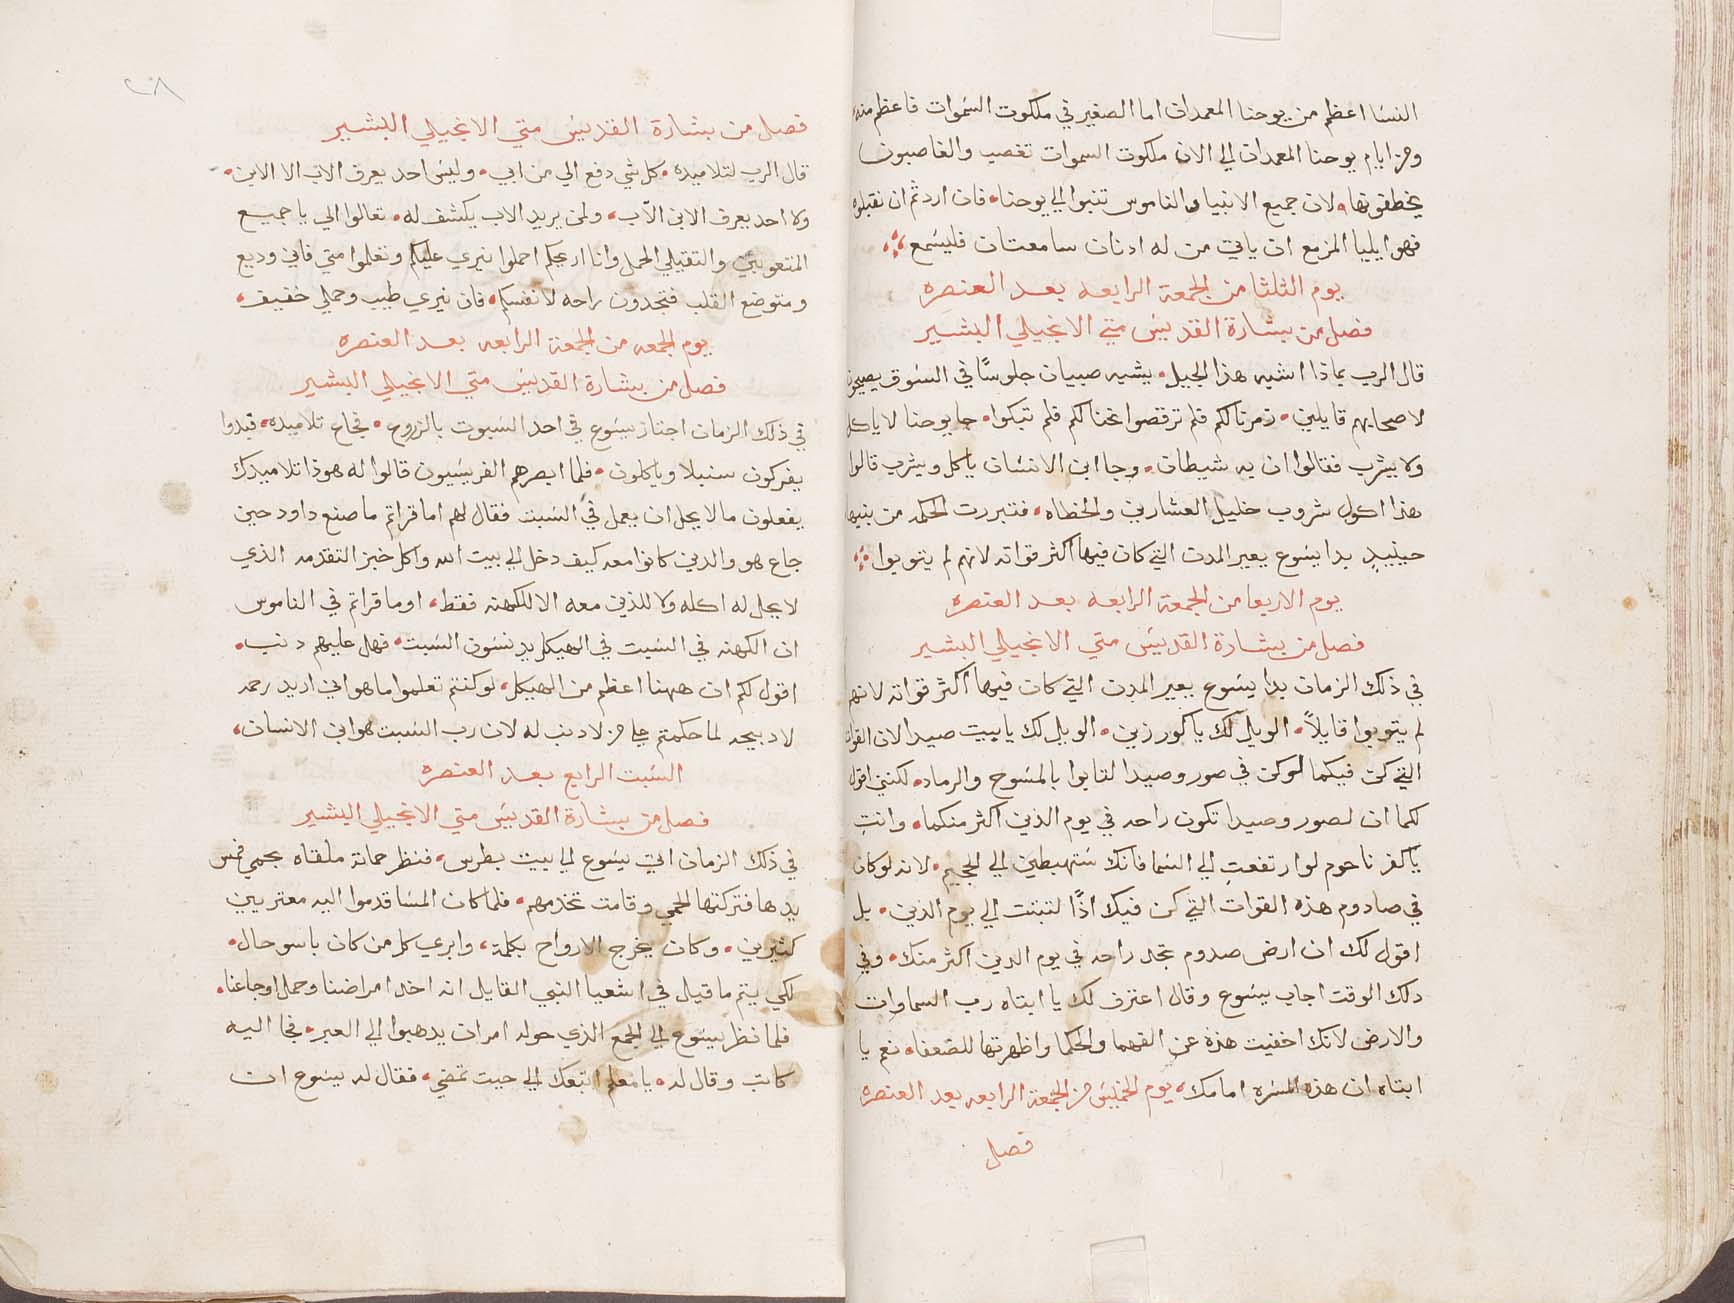 النسا اعظم من يوحنا المعمدان اما الصغير في ملكوت السموات فاعظم منه
ومن ايام يوحنا المعمدان الي الان ملكوت السموات تغصب والغاصبون
يخطفونها. لان جميع الانبيا والناموس تنبوا الي يوحنا. فان اردتم ان تقبلوه
فهو ايليا المزمع ان ياتي من له ادنان سامعتان فليسمع
يوم الثلثا من الجمعة الرابعه بعد العنصره
فصل من بشارة القديس متي الانجيلي البشير
قال الرب بماذا اشبه هذا الجيل. يشبه صبيان جلوسًا في السوق يصيحون
لاصحابهم قايلين. زمرنا لكم فلم ترقصوا نحنا لكم فلم تبكوا. جا يوحنا لا ياكل
ولا يشرب فقالوا ان به شيطان. وجا ابن الانسان ياكل ويشرب قالوا
هذا اكول شروب خليل العشارين والخطاه. فتبررت الحكمه من بنيها
حينيدٍ بدا يسوع يعير المدن التي كان فيها اكثر قواته لانهم لم يتوبوا
يوم الاربعا من الجمعة الرابعه بعد العنصره
فصل من بشارة القديس متي الانجيلي البشير
في ذلك الزمان بدا يسوع يعير المدن التي كان فيها اكثر قواته لانهم
لم يتوبوا قايلاً. الويل لك يا كورزين. الويل لك يا بيت صيدا لان القوات
التي كن فيكما لو كن في صور وصيدا لتابوا بالمسوح والرماد. لكنني اقول
لكما ان لصور وصيدا تكون راحه في يوم الدين اكثر منكما. وانتِ
يا كفرناحوم لو ارتفعتِ الي السما فانك ستهبطين الي الجحيم. لانه لو كان
في صادوم هذه القوات التي كن فيك اذًا لتبتت الي يوم الدين. بل
اقول لك ان ارض صدوم تجد راحه في يوم الدين اكثر منك. وفي
دلك الوقت اجاب يسوع وقال اعترف لك يا ابتاه رب السماوات
والارض لانك اخفيت هذه عن الفهما والحكما واظهرتها للضعفا. نعم يا
ابتاه ان هذه المسره امامك. يوم الخميس من الجمعة الرابعه بعد العنصره
فصل
٢٨
فصل من بشارة القديس متي الانجيلي البشير
قال الرب لتلاميذه. كل شي دفع الي من ابي. وليس احد يعرف الاب الا الابن.
ولا احد يعرف الابن الا الاب، ولمن يريد الاب يكشف له. تعالوا الي يا جميع
المتعوبين والتقيلي الحمل وانا اريحكم احملوا نيري عليكم وتعلموا مني فاني وديع
ومتوضع القلب فتجدون راحه لانفسكم. فان نيري طيب وحملي خفيف،
يوم الجمعه من الجمعة الرابعه بعد العنصره
فصل من بشارة القديس متي الانجيلي البشير
في ذلك الزمان اجتاز يسوع في احد السبوت بالزروع. فجاع تلاميذه. فبدوا
يفركون سنبلا وياكلون. فلما ابصرهم الفريسيون قالوا له هوذا تلاميدك
يفعلون ما لا يحل ان يعمل في السبت فقال لهم اما قراتم ما صنع داود حين
جاع هو والدين كانوا معه كيف دخل الي بيت الله واكل خبز التقدمه الذي
لا يحل له اكله ولا للذين معه الا للكهنه فقط، اوما قراتم في الناموس
ان الكهنه في السبت في الهيكل يدنسون السبت. فهل عليهم دنب.
اقول لكم ان ههنا اعظم من الهيكل، لو كنتم تعلموا ما هو اني اريد رحمه
لا دبيحه لما حكمتم علي من لا دنب له لان رب السبت هو ابن الانسان،
السبت الرابع بعد العنصره
فصل من بشارة القديس متي الانجيلي البشير
في ذلك الزمان اتي يسوع الي بيت بطرس، فنظر حماته ملقاه بحمي فمس
يدها فتركتها الحمي وقامت تخدمهم. فلما كان المسا قدموا اليه معتريين
كثيرين. وكان يخرج الارواح بكلمة، وابري كل من كان باسو حال.
لكي يتم ما قيل في اشعيا النبي القايل انه اخد امراضنا وحمل اوجاعنا.
فلما نظر يسوع الي الجمع الذي حوله امر ان يدهبوا الي العبر. فجا اليه
كاتب وقال له. يا معلم اتبعك الي حيت تمضي، فقال له يسوع ان